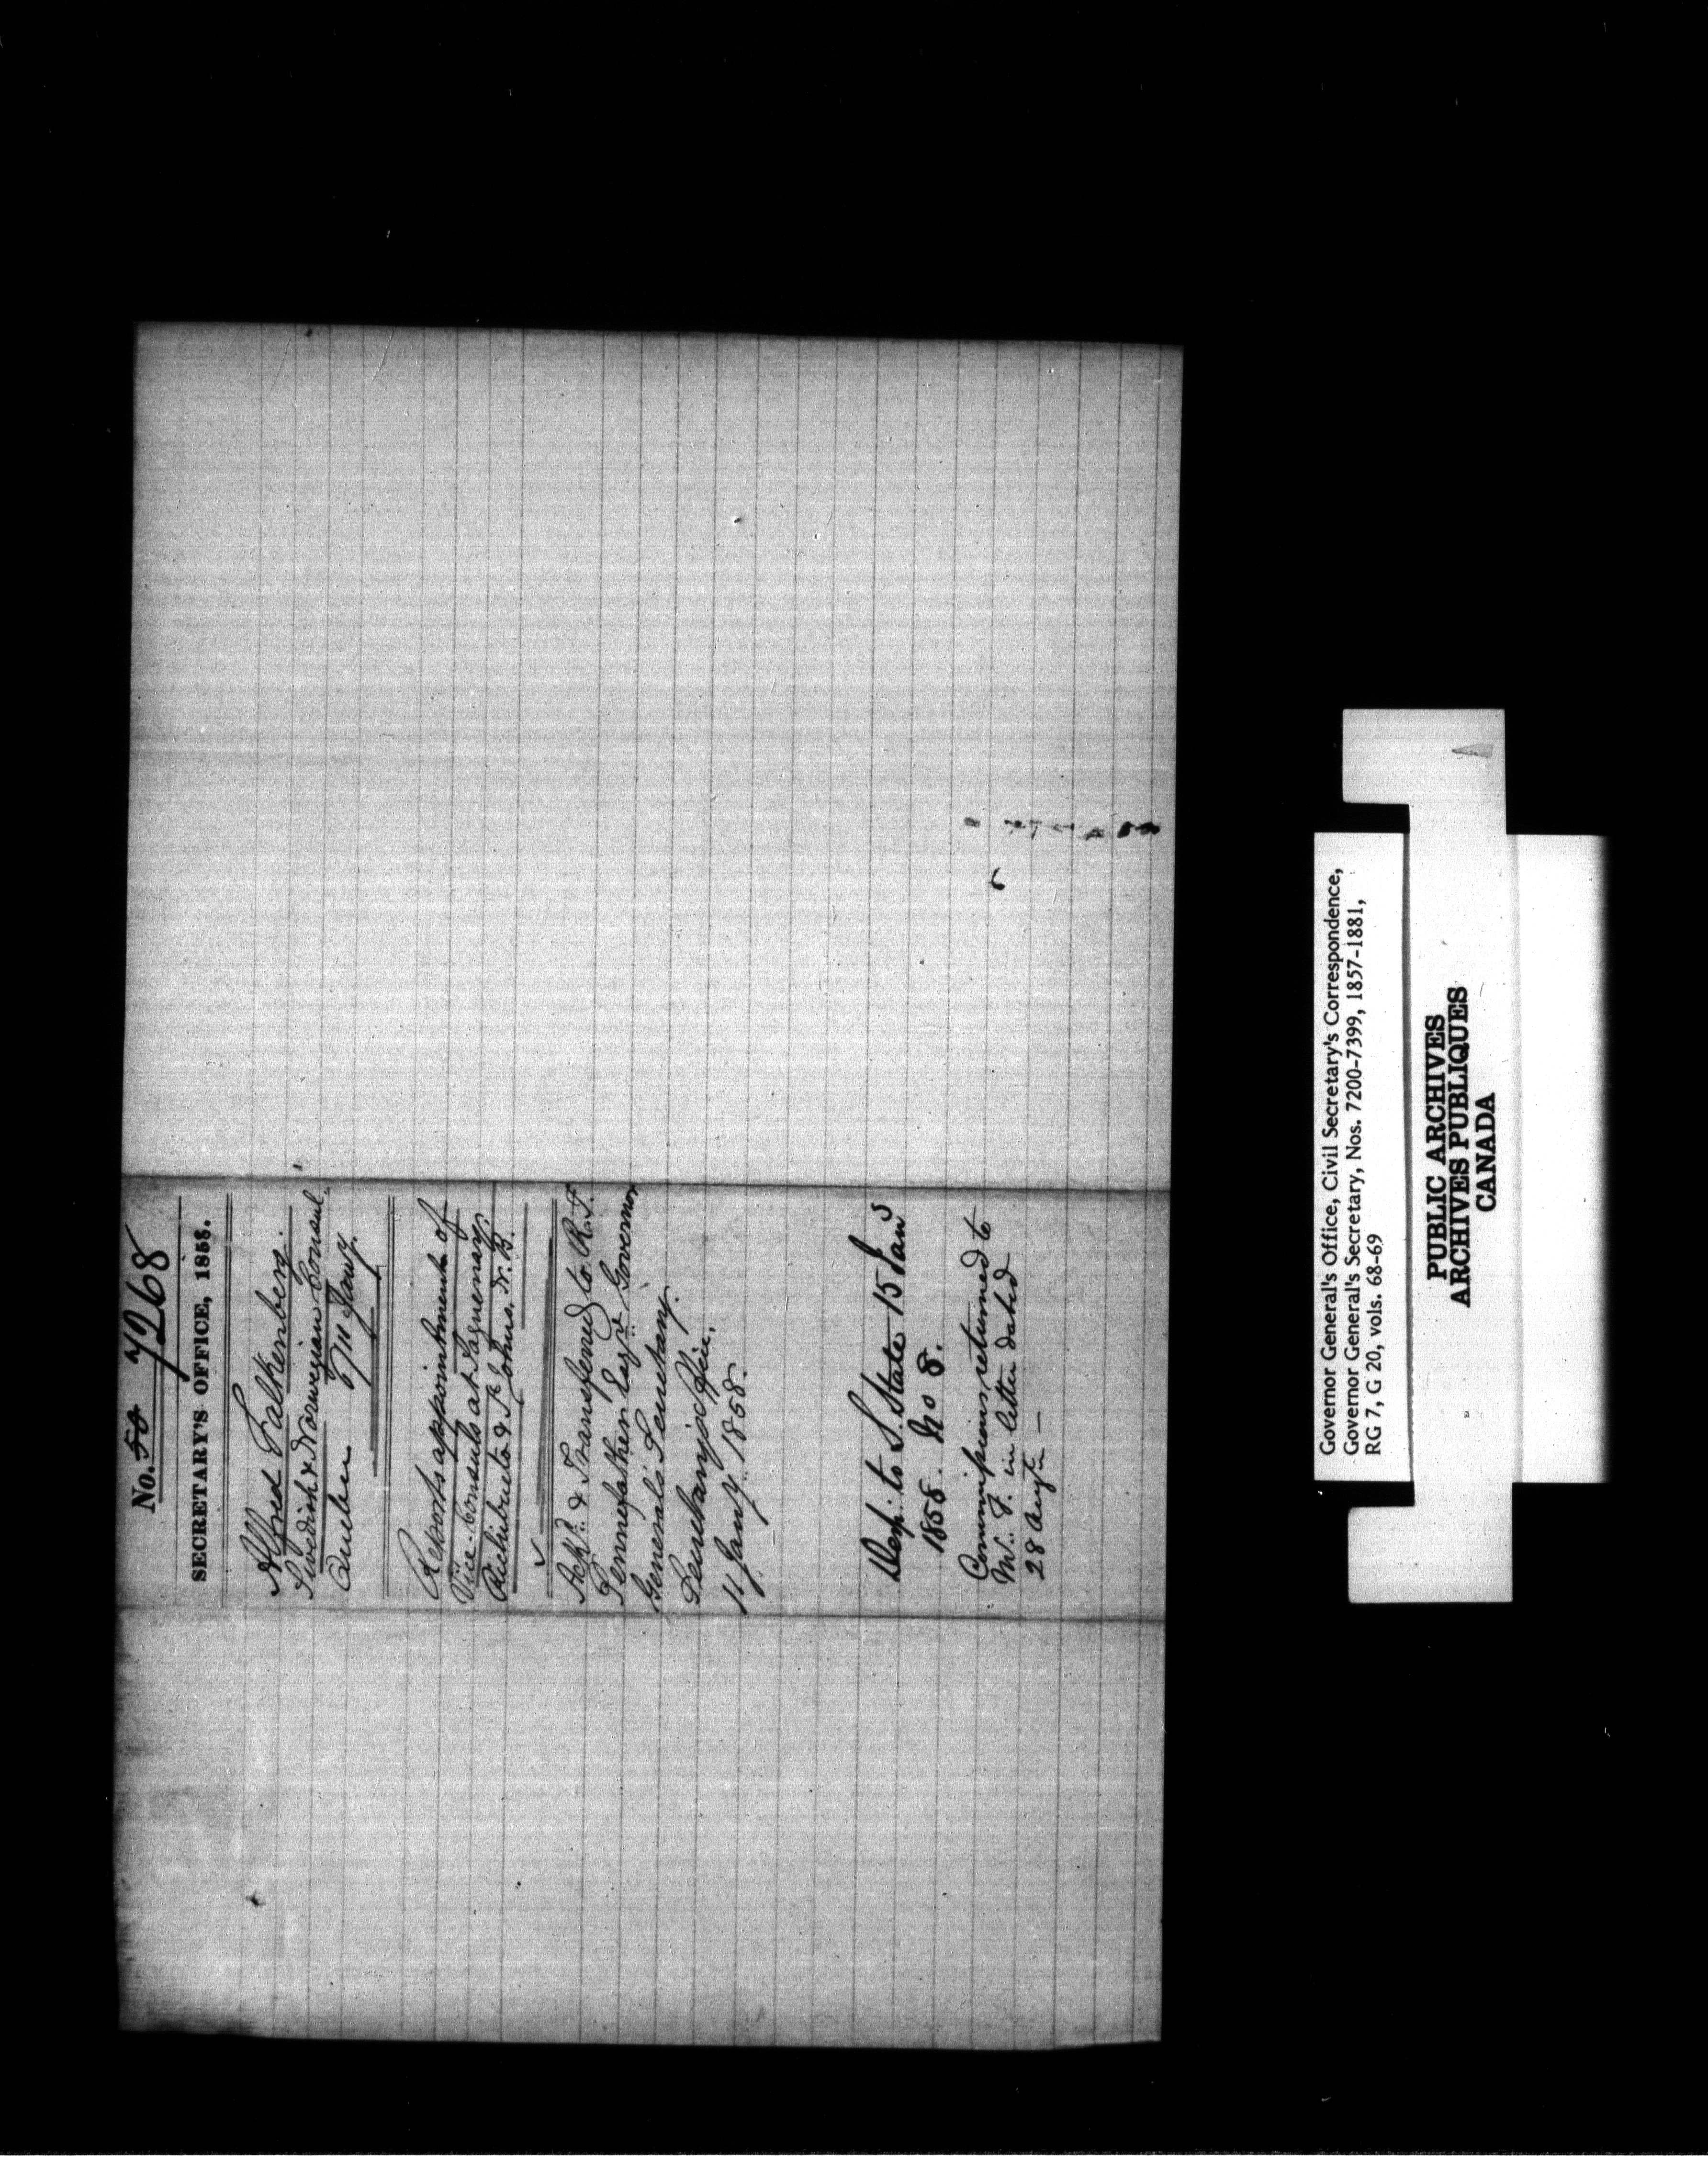 No. 50 7268
SECRETARY'S OFFICE, 1858.
Alfred Falkenberg.
Swedish & Norwegian Consul.
Quebec 7th Jany.
Reports appointment of
Vice-Consuls at Saguenay,
Richibucto & St Johns, N.B.
Ackd. & Transferred to R. T.
Pennefather Esqr. Governor
General's Secretary.
Secretary's Office,
11 Jany. 1858.
Desp. to S. State 15 Jan
1858. No 8.
Commissions returned to
Mr. F. in letter dated
28 Augt —
Governor General's Office, Civil Secretary's Correspondence,
Governor General's Secretary, Nos. 7200-7399, 1857-1881,
RG 7, G 20, vols. 68-69
PUBLIC ARCHIVES
ARCHIVES PUBLIQUES
CANADA